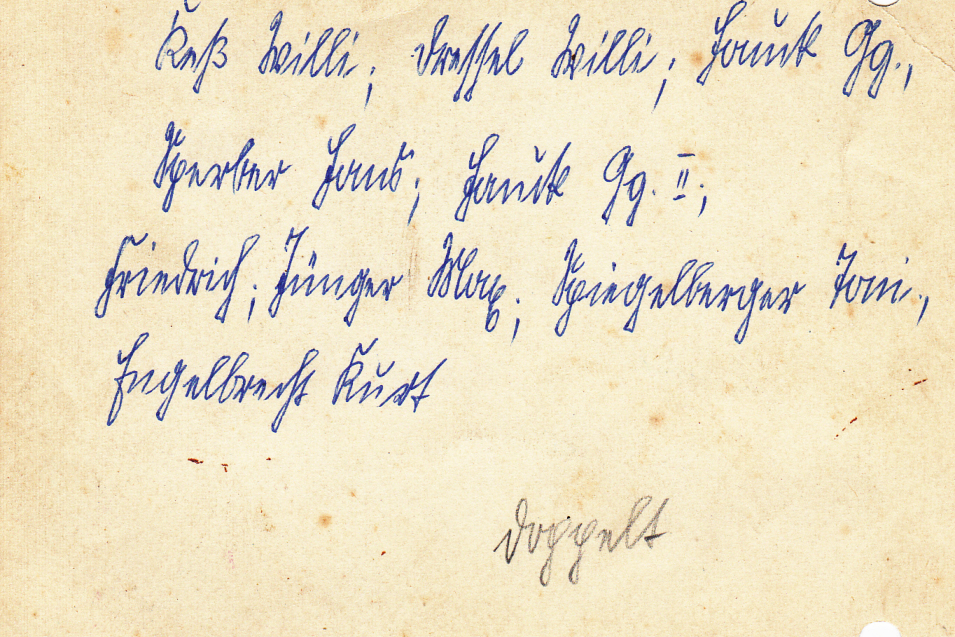 Keß Willi; Dressel Willi; Hauck Gg.,
Sperber Hans; Hauck Gg. II;
Friedrich; Jünger Max; Spiegelberger Toni;
Engelbrecht Kurt
doppelt